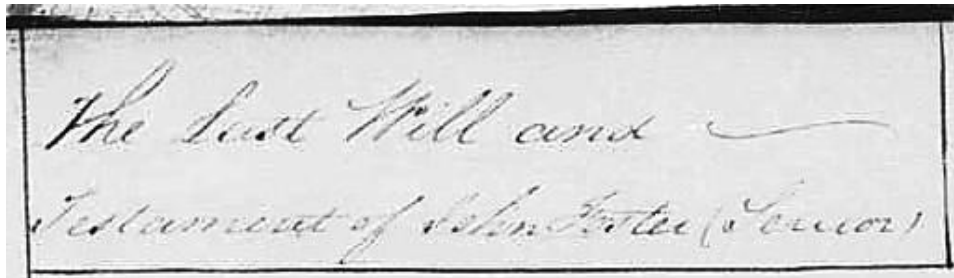 The Last Will and
Testament of John Foster (Senior)